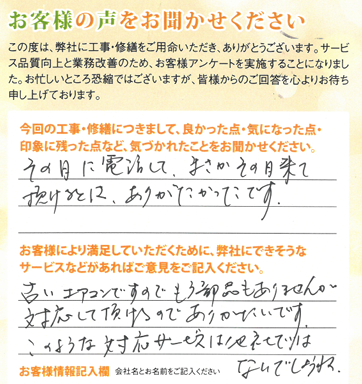 お客様の声をお聞かせください
この度は、弊社に工事・修繕をご用命いただき、ありがとうございます。サービ
ス品質向上と業務改善のため、お客様アンケートを実施することになりまし
た。お忙しいところ恐縮ではございますが、皆様からのご回答を心よりお待ち
申し上げております。
今回の工事・修繕につきまして、良かった点・気になった点・
印象に残った点など、気づかれたことをお聞かせください。
その日に電話して、まさかその日来て
頂けるとは、ありがたかったです。
お客様により満足していただくために、弊社にできそうな
サービスなどがあればご意見をご記入ください。
古いエアコンですのでもう部品もありませんが
対応して頂けるのでありがたいです。
このような対応サービスは他社では
ないでしょうね。
お客様情報記入欄 会社名とお名前をご記入ください